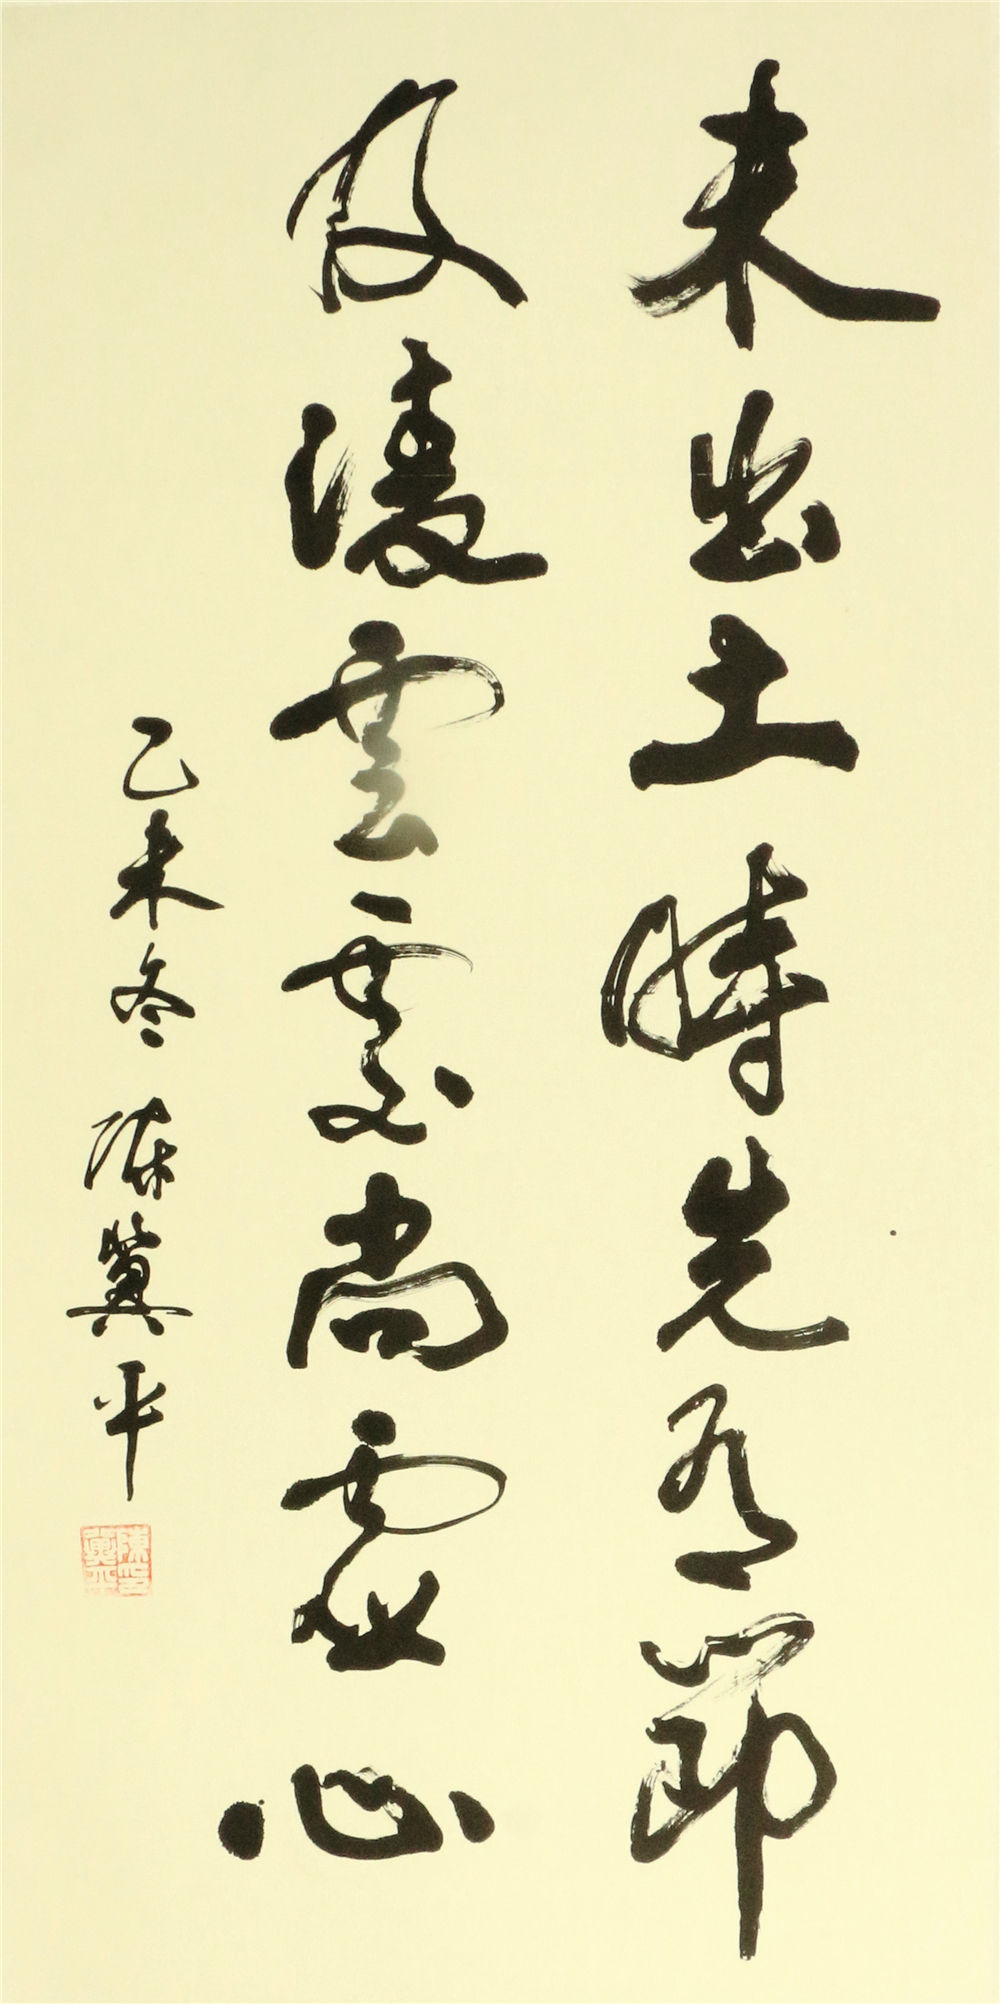 未出土時先有節
及凌雲處尚虛心
乙未冬 陳冀平
陳冀平印